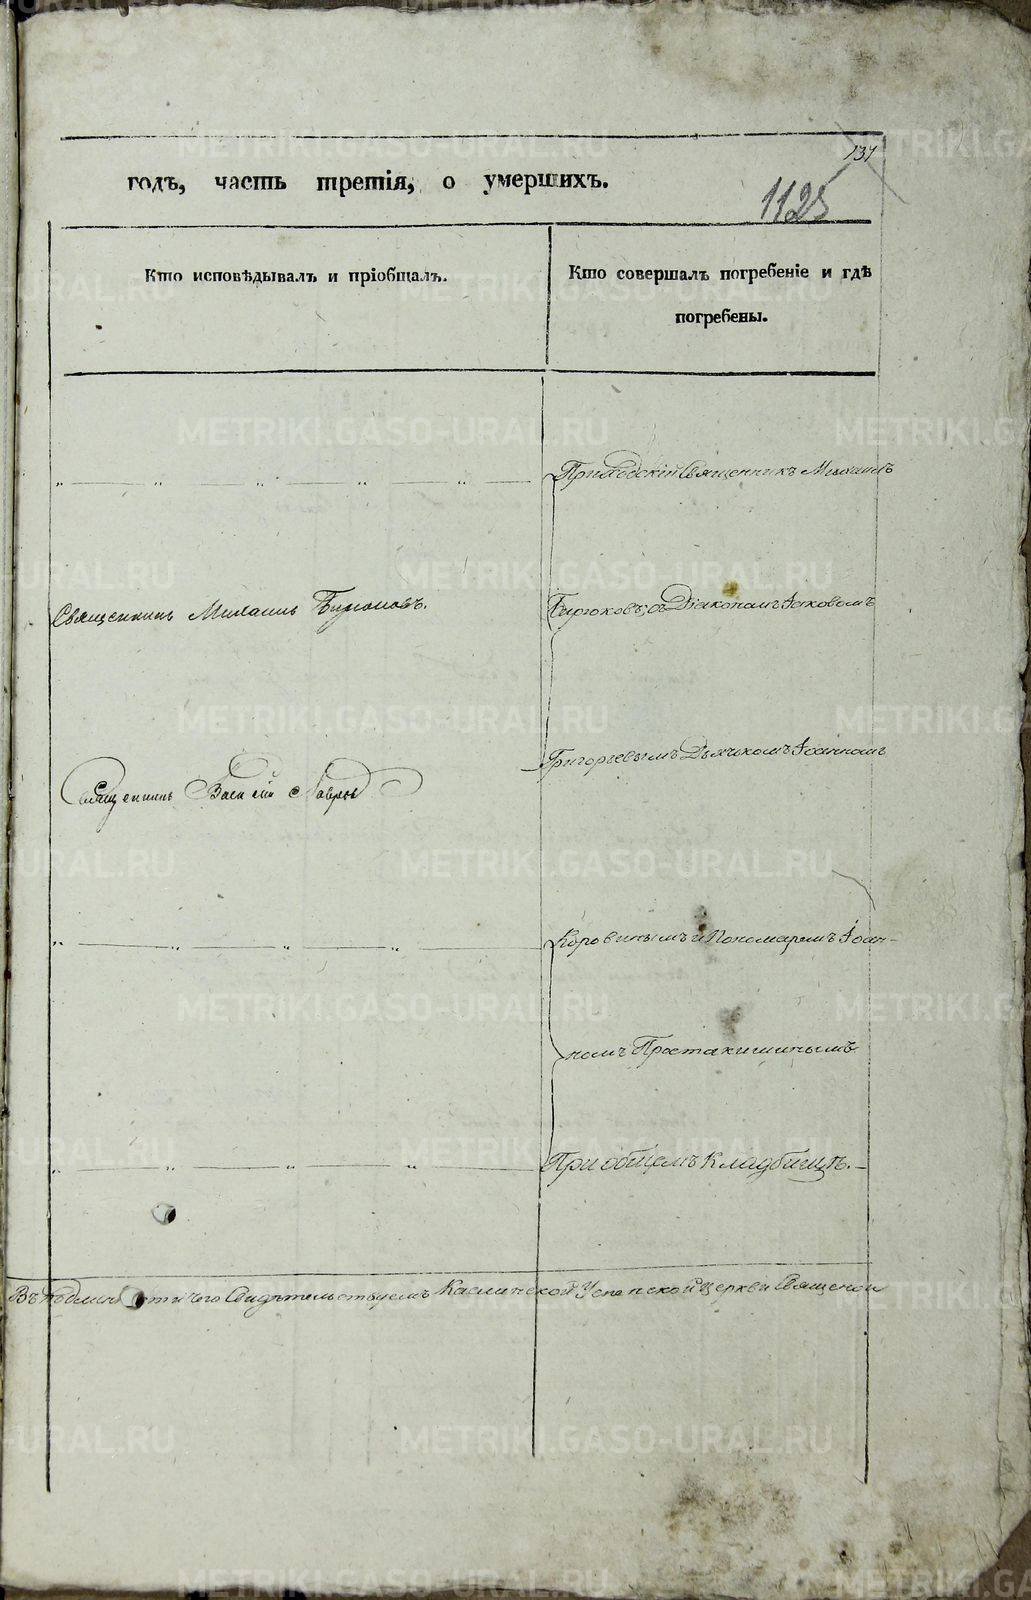 137
годъ, часть третія, о умершихъ.
1125
Кто исповѣдывалъ и пріобщалъ.
Кто совершалъ погребеніе и гдѣ
погребены.
Приходскій Священникъ Михаилъ
Священникъ Михаилъ Бирюковъ.
Бирюковъ, съ Діакономъ Іаковомъ
Григорьевымъ Дьячкомъ Іоанномъ
Священникъ Василій Лавровъ
Коровинымъ и Пономаремъ Іоан-
номъ Простакишинымъ
При общемъ кладбищѣ.
Свидѣтельствуемъ Каслинской Успенской церкви Священно и
METRIKI.GASO-URAL.RU